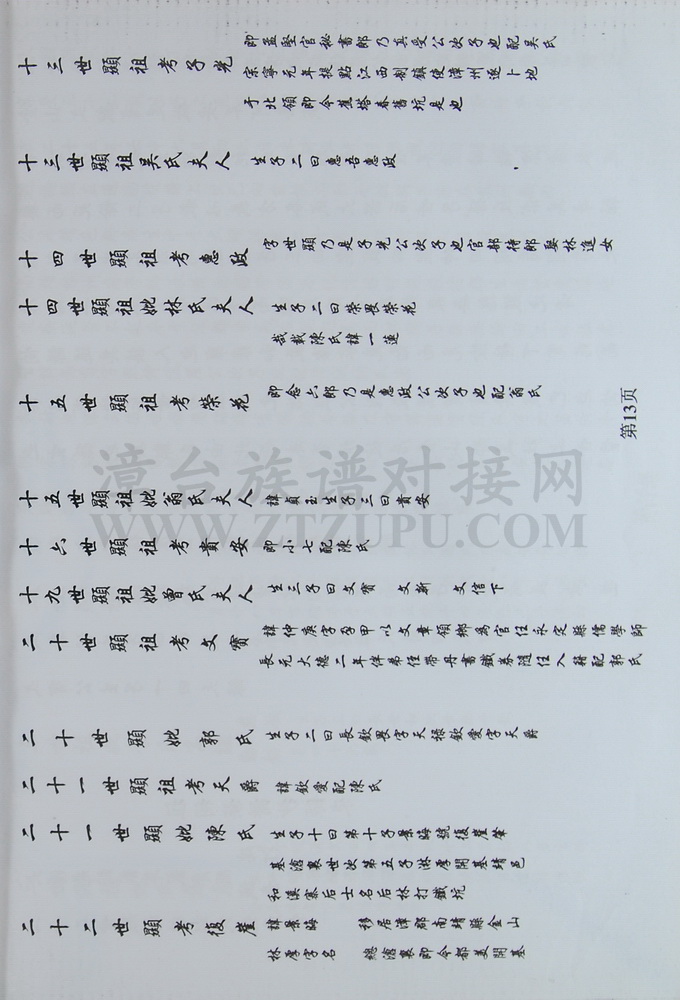 十三世顯祖考子光 即孟堅官秘書郎乃真受公次子也配吳氏
宗寧元年提點江西制鎮使漳州遂卜地
于北領即今崔塔春舊坑是也
十三世顯祖吴氏夫人 生子二曰惠吾惠政
十四世顯祖考惠政 字世顯乃是子光公次子也官部待郎娶林進女
十四世顯祖妣林氏夫人 生子二曰榮畏榮花
哉載陳氏諱一蓮
十五世顯祖考榮花 即念六郎乃是惠政公次子也配翁氏
十五世顯祖妣翁氏夫人 諱貞玉生子三曰貴安
十六世顯祖考貴安 即小七配陳氏
十九世顯祖妣曾氏夫人 生三子曰文寳 文新 文信下
二十世顯祖考文寳 諱仲庚字孕甲以文章領鄉為官任永定縣儒學師
長元大德二年伴弟侄帶丹書鐵券隨任入籍配郭氏
二十世顯妣郭氏 生子二曰長欽畏字天禄欽愛字天爵
二十一世顯祖考天爵 諱欽愛配陳氏
二十一世顯妣陳氏 生子十曰第十子景晦號復崖肇
基滄襄世次第五子淋厚開基靖邑
和溪寨后士名后林打鐵坑
二十二世顯考復崖 諱景晦 移居漳郡南靖縣金山
林厚字名 總滄襄即今都美開基
第13页
漳台族谱对接网
WWW.ZTZUPU.COM